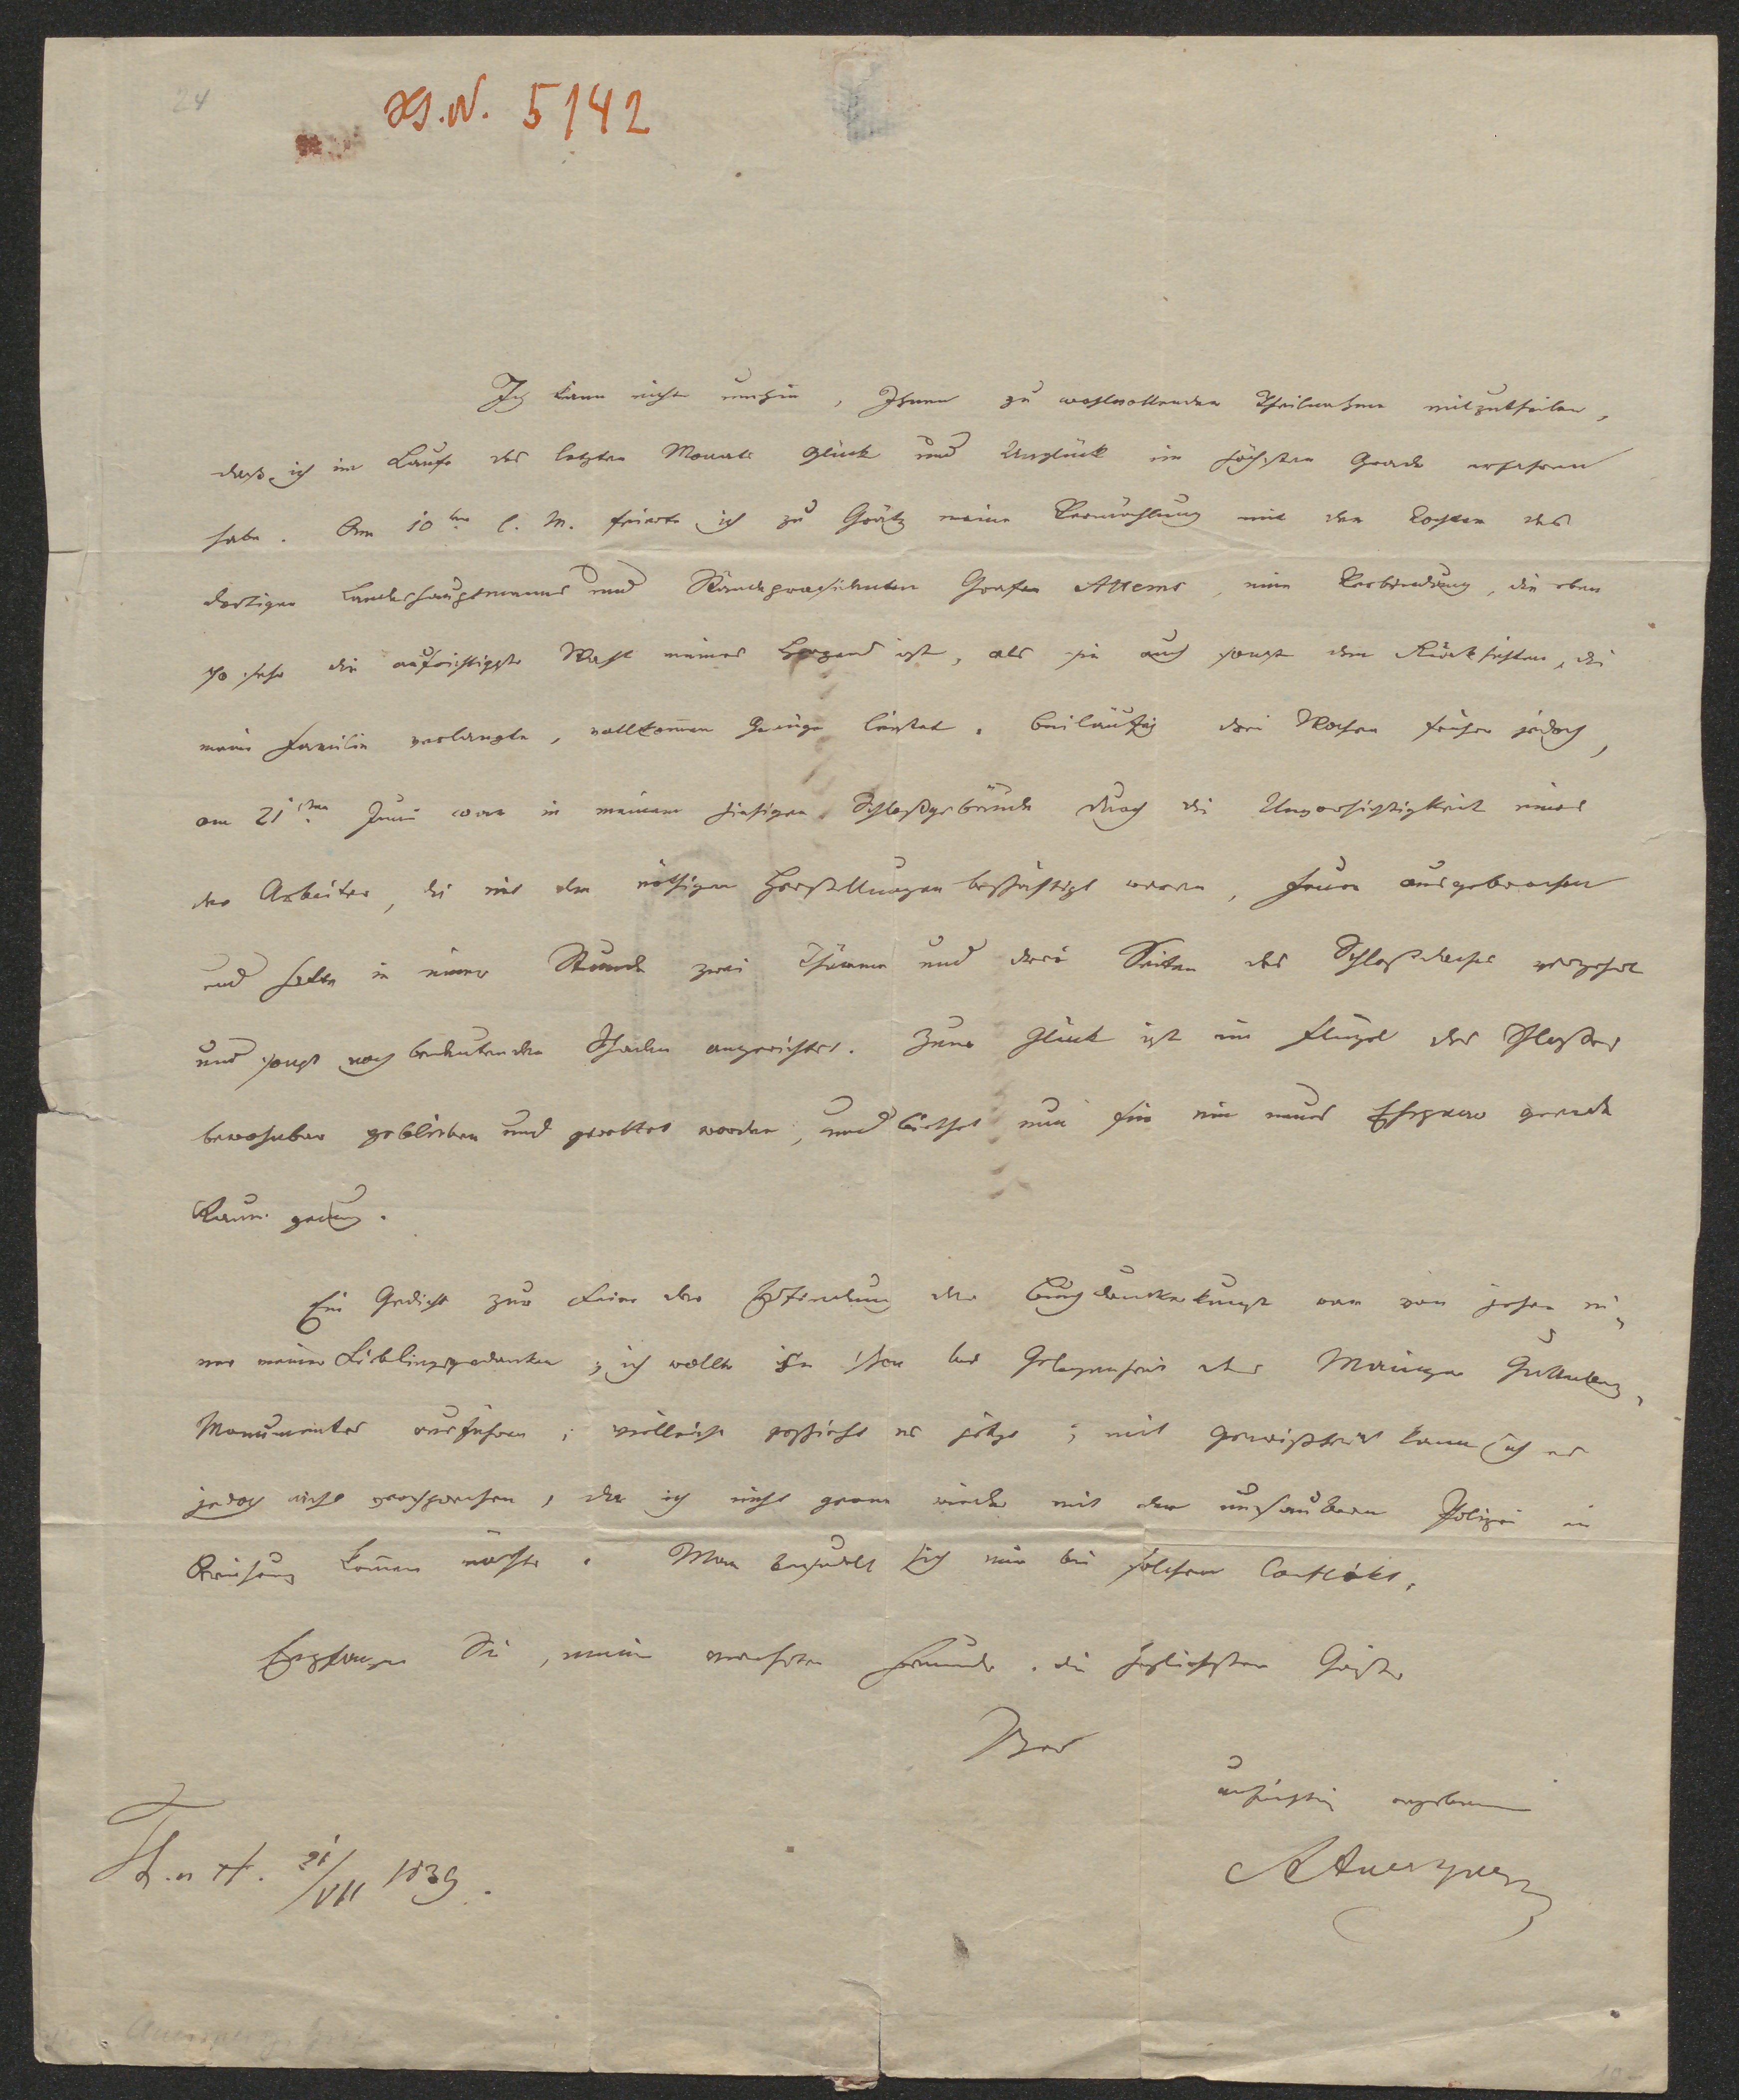 24
H.I.N. 5142
Ich kann nicht umhin, Ihnen zu wohlwollender Theilnahme mitzutheilen,
daß ich im Laufe des letzten Monats Glück und Unglück im höchsten Grade erfahren
habe. Am 10ten l. M. feierte ich zu Grätz meine Vermählung mit der Tochter des
dortigen Landeshauptmanns und Ständepräsidenten Grafen Attems, eine Verbindung, die eben
so sehr die aufrichtigste Wahl meines Herzens ist, als sie auch sonst den Rücksichten, die
meine Familie verlangte, vollkomen Genüge leistet. Beiläufig drei Wochen früher jedoch,
am 21sten Juni war in meinem hiesigen Schloßgebäude durch die Unvorsichtigkeit eines
der Arbeiter, die mit den nöthigen Herstellungen beschäftigt waren, Feuer ausgebrochen
und hatte in einer Stunde zwei Thürme und drei Seiten des Schloßdaches verzehrt
und sonst noch bedeutenden Schaden angerichtet. Zum Glück ist ein Flügel des Schloßes
bewohnbar geblieben und gerettet worden, und biethet nun für ein neues Ehepaar gerade
Raum genug.
Ein Gedicht zur Feier der Erfindung der Buchdruckerkunst war von jeher ei-
ner meiner Lieblingsgedanken; ich wollte ihn schon bei Gelegenheit des Mainzer Gutenberg-
Monumentes ausführen; vielleicht geschieht es jetzt; mit Gewißheit kann ich es
jedoch nicht versprechen, da ich nicht gerne wieder mit der unsaubern Polizei in
Berührung komen möchte. Man besudelt sich nur bei solchem Conflikt.
Empfangen Sie, mein verehrter Freund, die herzlichsten Grüße
Ihres
aufrichtig ergebenen
AAuersperg
Th. a H. 21/VII 1839.
Auersperg